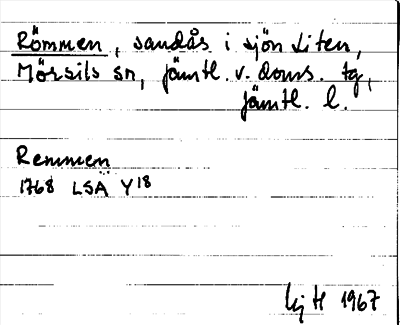 Römmen, sandås i sjön Liten,
Mörsils sn, jämtl. v. doms. tg,
jämtl. l.
Remmen
1768 LSÄ Y18
1967